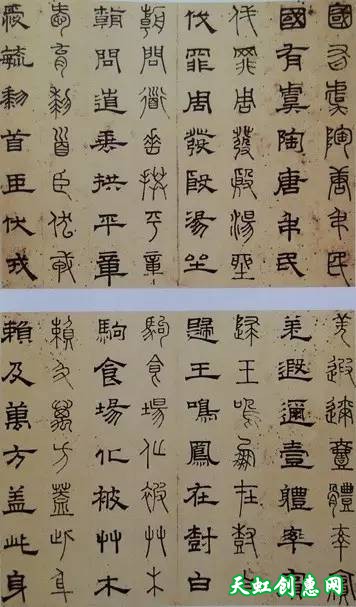 國有虞陶唐弔民
國有虞陶唐弔民
伐罪周發殷湯坐
伐罪周發殷湯坐
朝問道垂拱平章
朝問道垂拱平章
愛育黎首臣伏戎
愛毓黎首臣伏戎
羌遐邇壹體率賓
羌遐邇壹體率賓
歸王鳴鳳在尌白
歸王鳴鳳在尌白
駒食場化被艸木
駒食場化被艸木
賴及萬方蓋此身
賴及萬方蓋此身
天虹创惠网